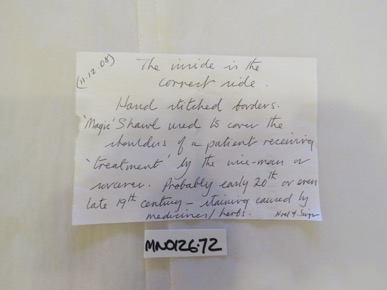 (11.12.08)
The inside is the
correct side.
Hand stitched borders.
'Magic' Shawl used to cover the
shoulders of a patient receiving
'treatment' by the wise-man or
sorcerer. Probably early 20th or even
late 19th century - staining caused by
medicines/herbs.
MN0126-72